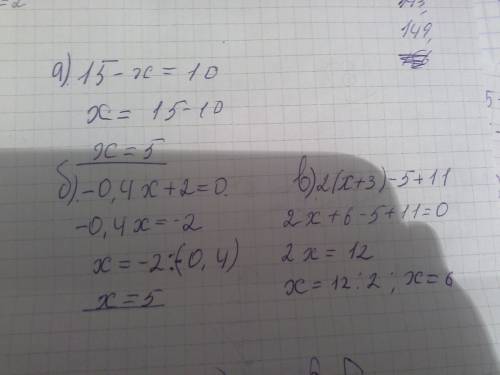 =2
149,
а). 15-x=10
x= 15-10
x=5
б). -0,4x+2=0.
-0,4x=-2
x=-2:(-0,4)
x=5
в). 2(x+3)-5+11
2x+6-5+11=0
2x=12
x=12:2; x=6